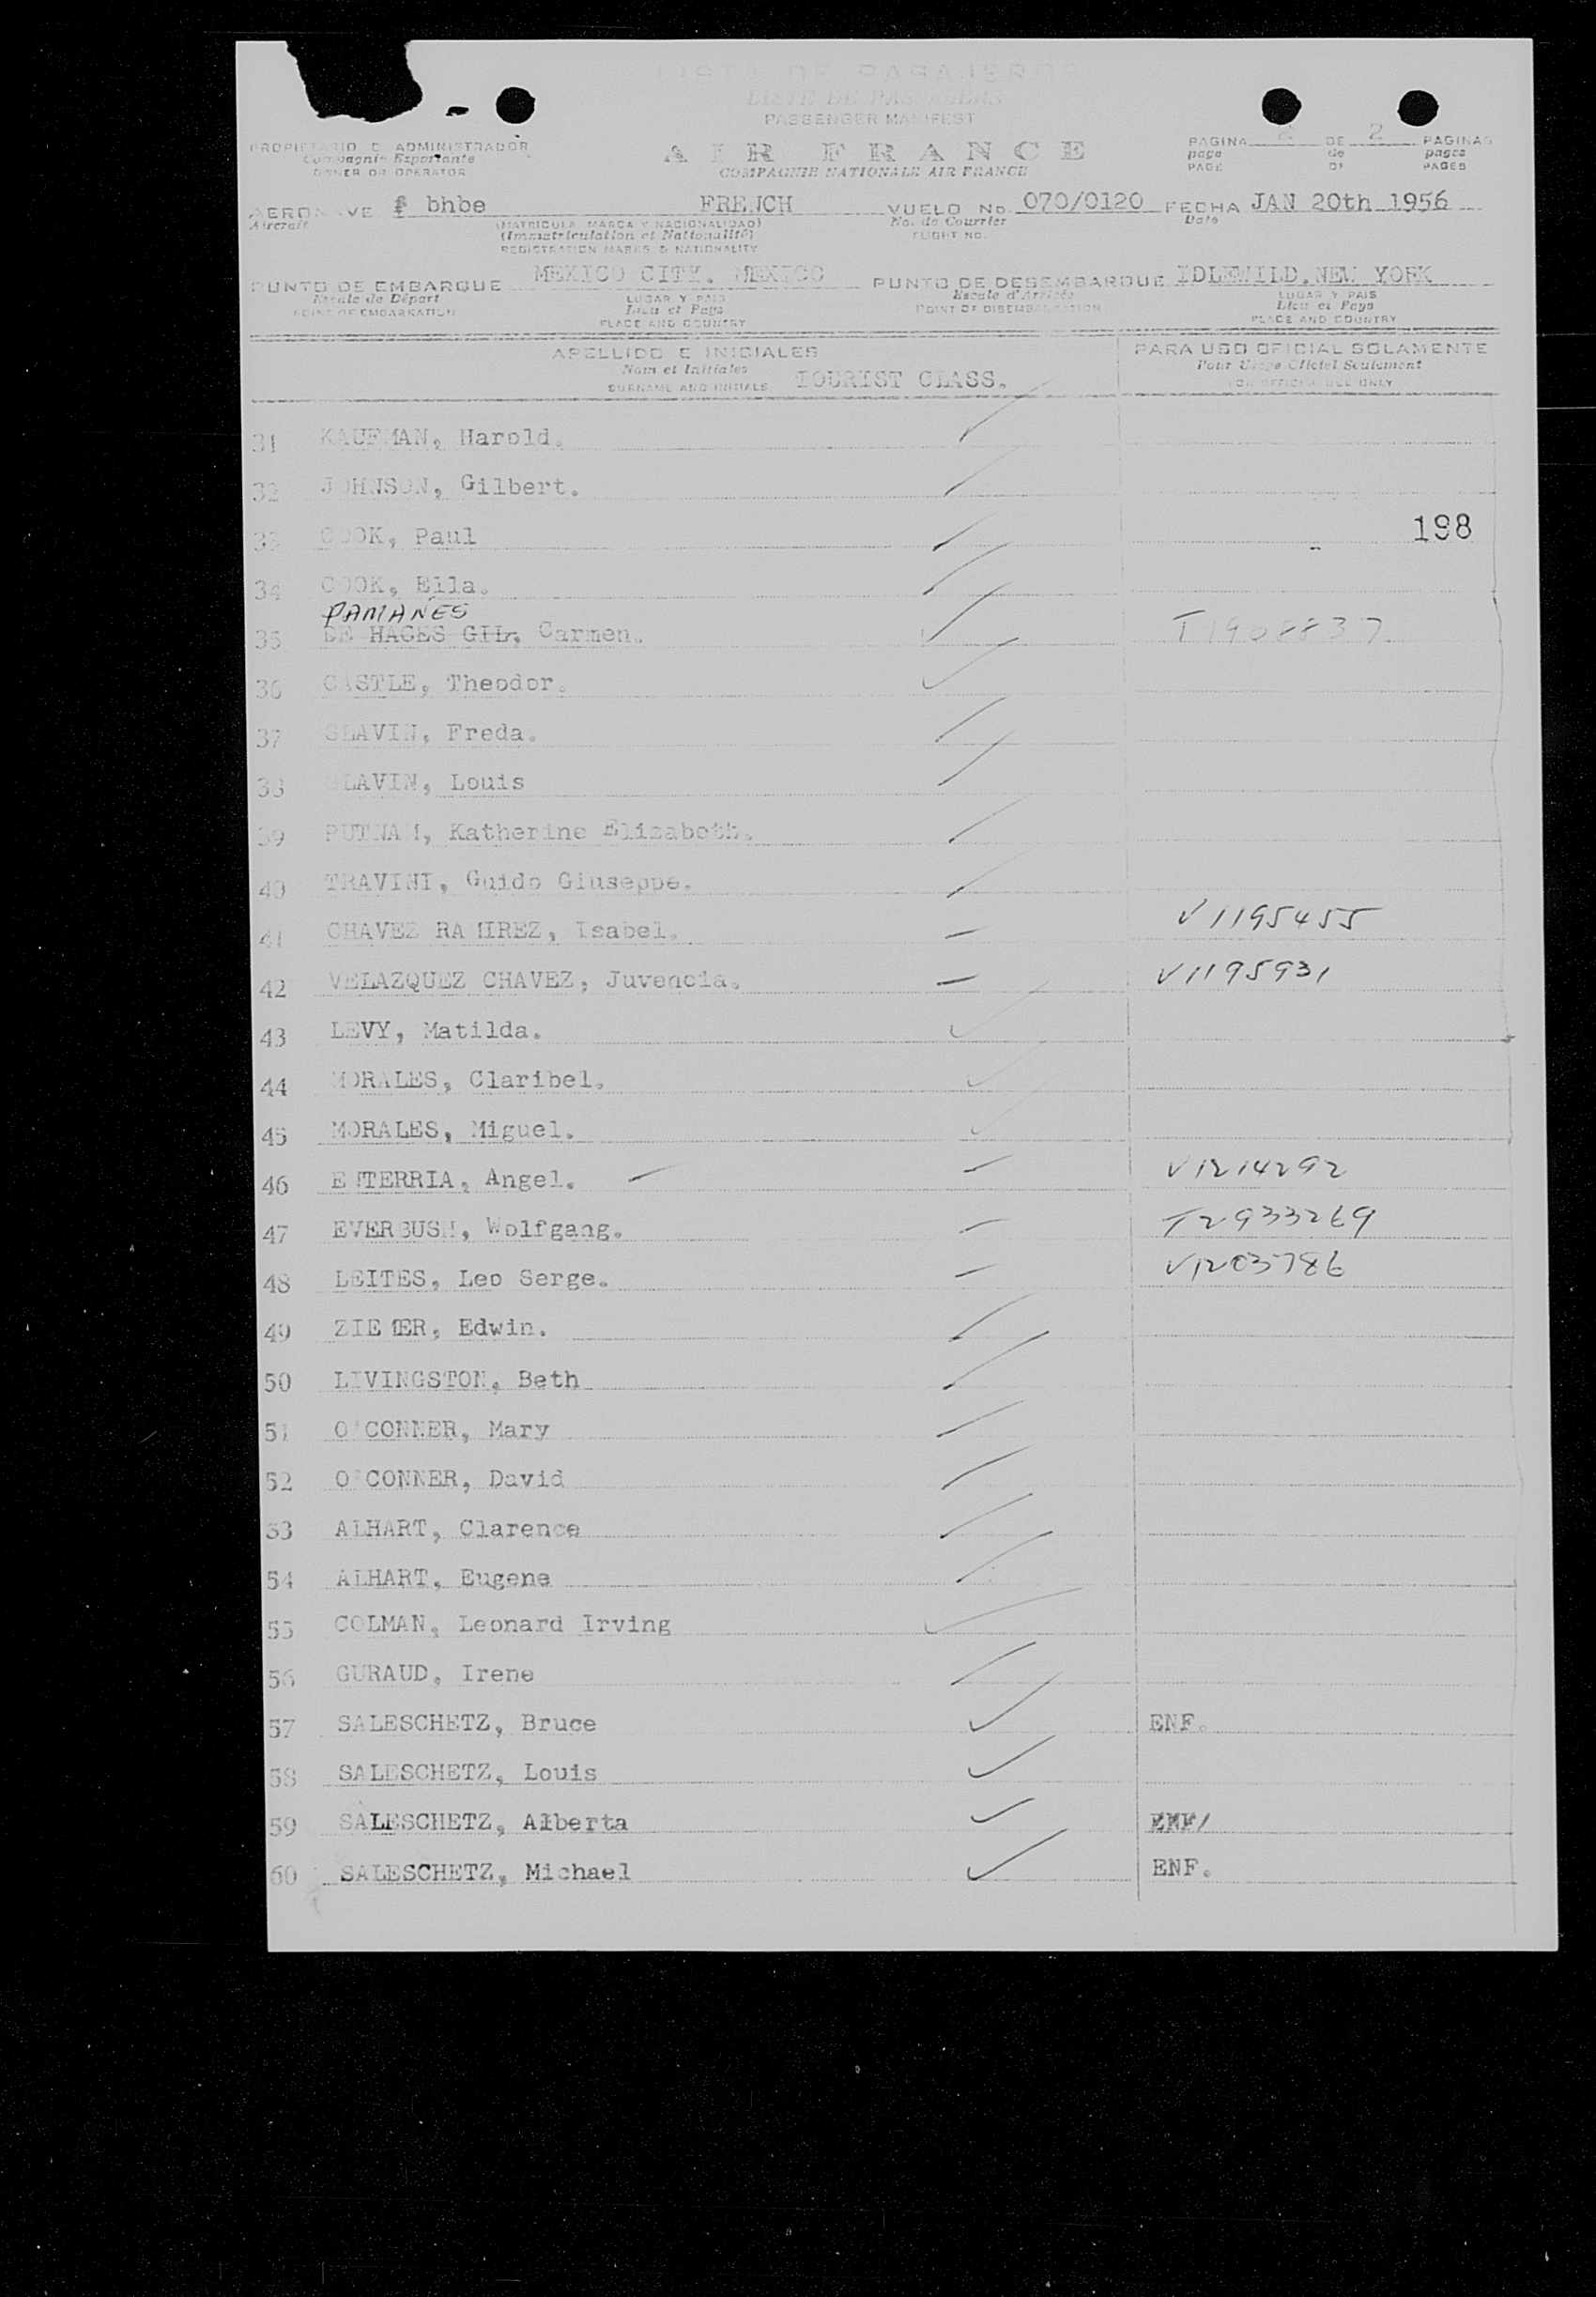 LISTA DE PASAJEROS
LISTE DE PASSAGERS
PASSENGER MANIFEST
PROPIETARIO O ADMINISTRADOR
Compagnie Exportante
OWNER OR OPERATOR
AIR FRANCE
COMPAGNIE NATIONALE AIR FRANCE
PAGINA 2 DE 2 PAGINAS
page de pages
PAGE OF PAGES
AERONAVE f bhbe FRENCH VUELO No. 070/0120 FECHA JAN 20th 1956
Aircraft (MATRICULA MARCA Y NACIONALIDAD) No. de Courrier Date
(Immatriculation et Nationalité) FLIGHT NO.
REGISTRATION MARKS & NATIONALITY
PUNTO DE EMBARQUE MEXICO CITY, MEXICO PUNTO DE DESEMBARQUE IDLEWILD, NEW YORK
Escale de Départ LUGAR Y PAIS Escale d'Arrivée LUGAR Y PAIS
POINT OF EMBARKATION Lieu et Pays POINT OF DISEMBARKATION Lieu et Pays
PLACE AND COUNTRY PLACE AND COUNTRY
APELLIDO E INICIALES PARA USO OFICIAL SOLAMENTE
Nom et Initiales Pour Usage Officiel Seulement
SURNAME AND INITIALS TOURIST CLASS. FOR OFFICIAL USE ONLY
31 KAUFMAN, Harold.
32 JOHNSON, Gilbert.
198
33 COOK, Paul
34 COOK, Ella.
PAMANES
35 DE HAGES GIL, Carmen. T1908837
36 CASTLE, Theodor.
37 SLAVIN, Freda.
38 SLAVIN, Louis
39 PUTNAM, Katherine Elizabeth.
40 TRAVINI, Guido Giuseppe.
41 CHAVEZ RAMIREZ, Isabel. V1195455
42 VELAZQUEZ CHAVEZ, Juvencia. V1195931
43 LEVY, Matilda.
44 MORALES, Claribel.
45 MORALES, Miguel.
46 ENTERRIA, Angel. V1214292
47 EVERBUSH, Wolfgang. T2933269
48 LEITES, Leo Serge. V1203786
49 ZIEMER, Edwin.
50 LIVINGSTON, Beth
51 O'CONNER, Mary
52 O'CONNER, David
53 ALHART, Clarence
54 ALHART, Eugene
55 COLMAN, Leonard Irving
56 GURAUD, Irene
57 SALESCHETZ, Bruce ENF.
58 SALESCHETZ, Louis
59 SALESCHETZ, Alberta ENF/
60 SALESCHETZ, Michael ENF.